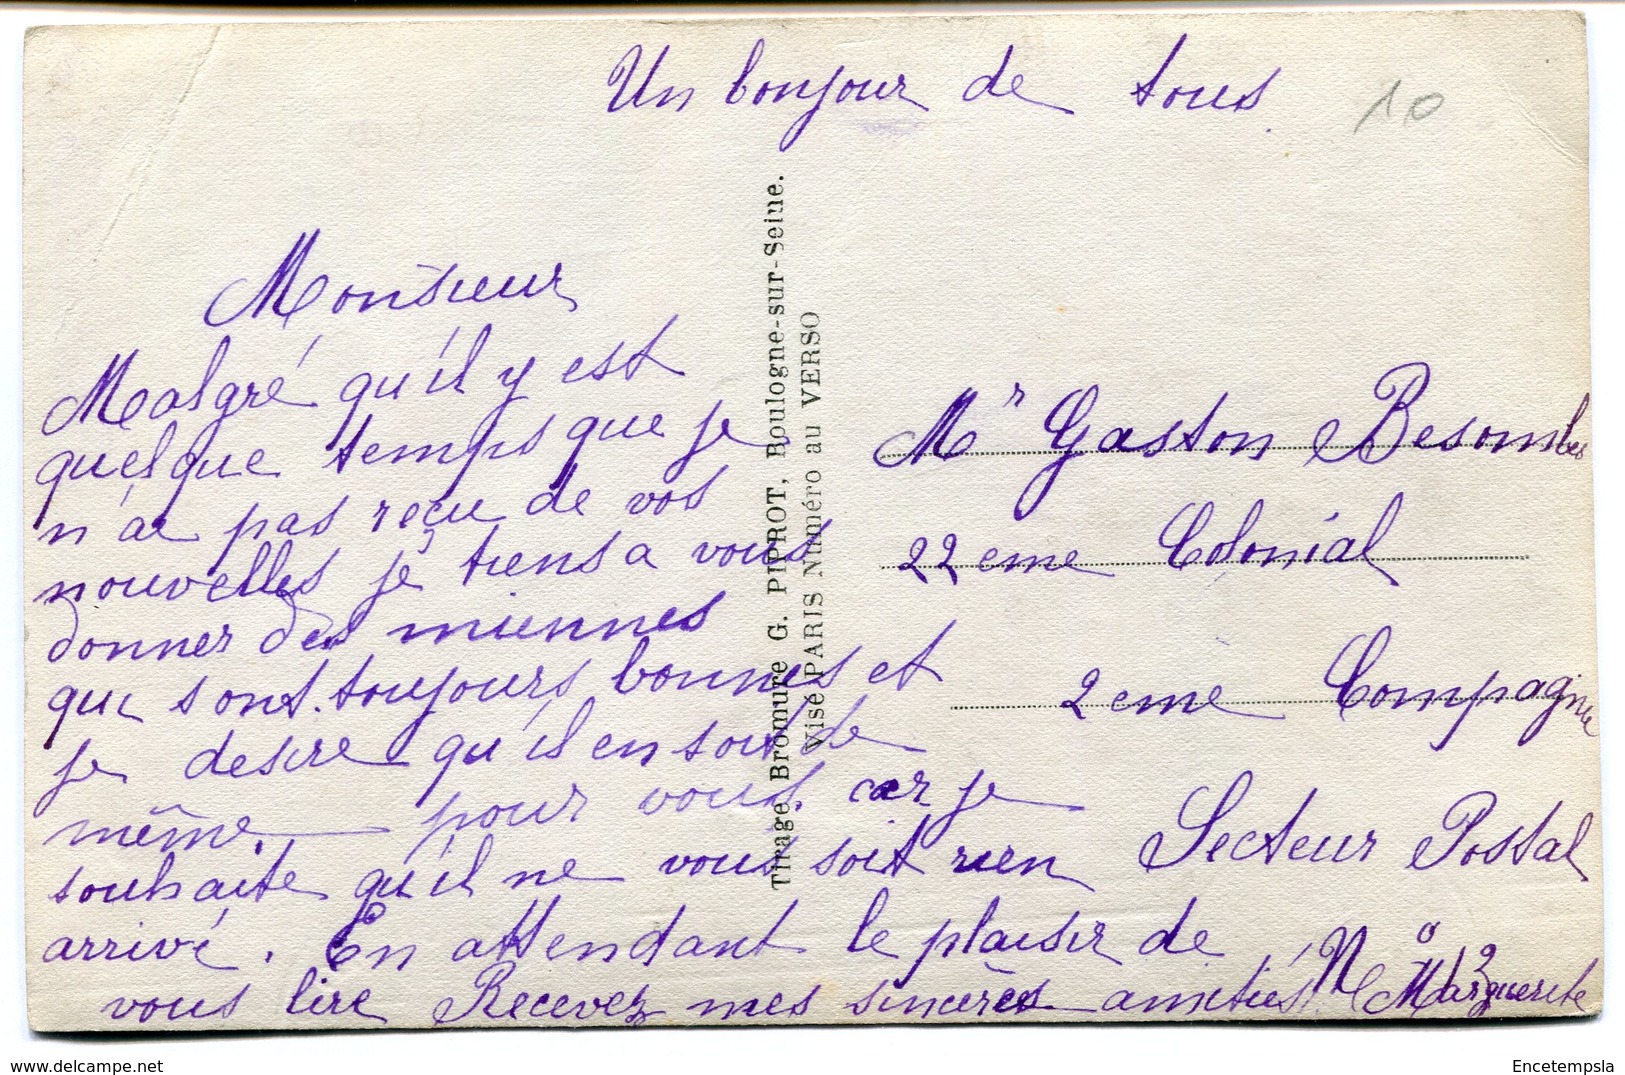 Un bonjour de tous.
10
Monsieur
Malgré qu'il y est
quelque temps que je
n'ai pas reçu de vos
nouvelles je tiens a vous
donner des miennes
qui sont toujours bonnes et
je desire qu'il en soit de
même pour vous. car je
souhaite qu'il ne vous soit rien
arrivé. En attendant le plaisir de
vous lire Recevez mes sincères amitiés
Marguerite
Tirage Bromure G. PIPROT, Boulogne-sur-Seine.
Visé PARIS Numéro au VERSO
Mr Gaston Besombes
22eme Colonial
2eme Compagnie
Secteur Postal
No
Encetempsla